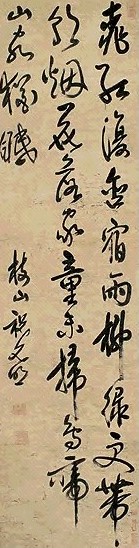 桃紅復含宿雨柳綠更帶
朝烟花落家童未掃鳥啼
山客猶眠
枝山祝允明